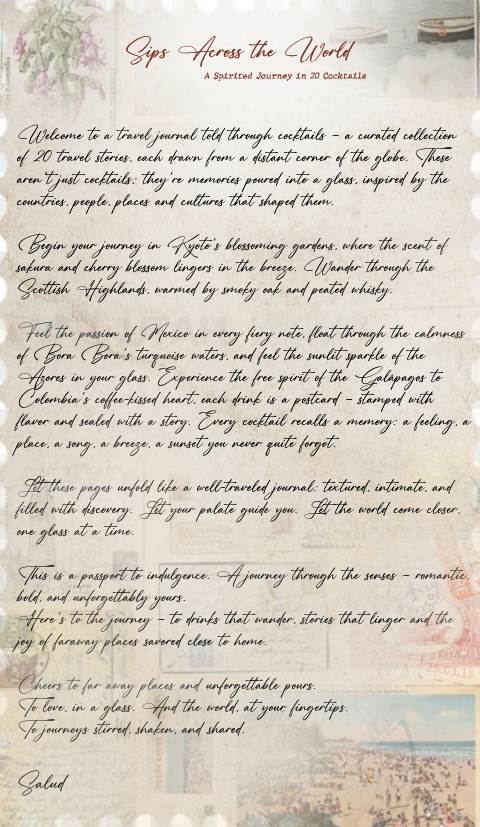 Sips Across the World
A Spirited Journey in 20 Cocktails
Welcome to a travel journal told through cocktails – a curated collection
of 20 travel stories, each drawn from a distant corner of the globe. These
aren't just cocktails; they're memories poured into a glass, inspired by the
countries, people, places and cultures that shaped them.
Begin your journey in Kyoto's blossoming gardens, where the scent of
sakura and cherry blossom lingers in the breeze. Wander through the
Scottish Highlands, warmed by smoky oak and peated whisky.
Feel the passion of Mexico in every fiery note, float through the calmness
of Bora Bora's turquoise waters, and feel the sunlit sparkle of the
Azores in your glass. Experience the free spirit of the Galápagos to
Colombia's coffee-kissed heart, each drink is a postcard – stamped with
flavor and sealed with a story. Every cocktail recalls a memory: a feeling, a
place, a song, a breeze, a sunset you never quite forgot.
Let these pages unfold like a well-traveled journal: textured, intimate, and
filled with discovery. Let your palate guide you. Let the world come closer,
one glass at a time.
This is a passport to indulgence. A journey through the senses – romantic,
bold, and unforgettably yours.
Here's to the journey – to drinks that wander, stories that linger and the
joy of faraway places savored close to home.
Cheers to far away places and unforgettable pours.
To love, in a glass. And the world, at your fingertips.
To journeys stirred, shaken, and shared.
Salud